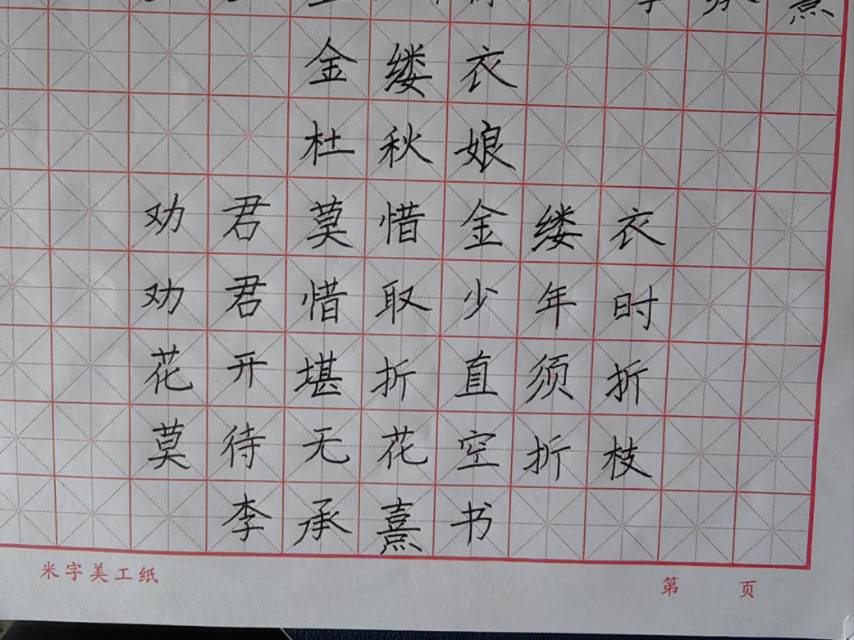 金缕衣
杜秋娘
劝君莫惜金缕衣
劝君惜取少年时
花开堪折直须折
莫待无花空折枝
李承熹书
米字美工纸
第 页